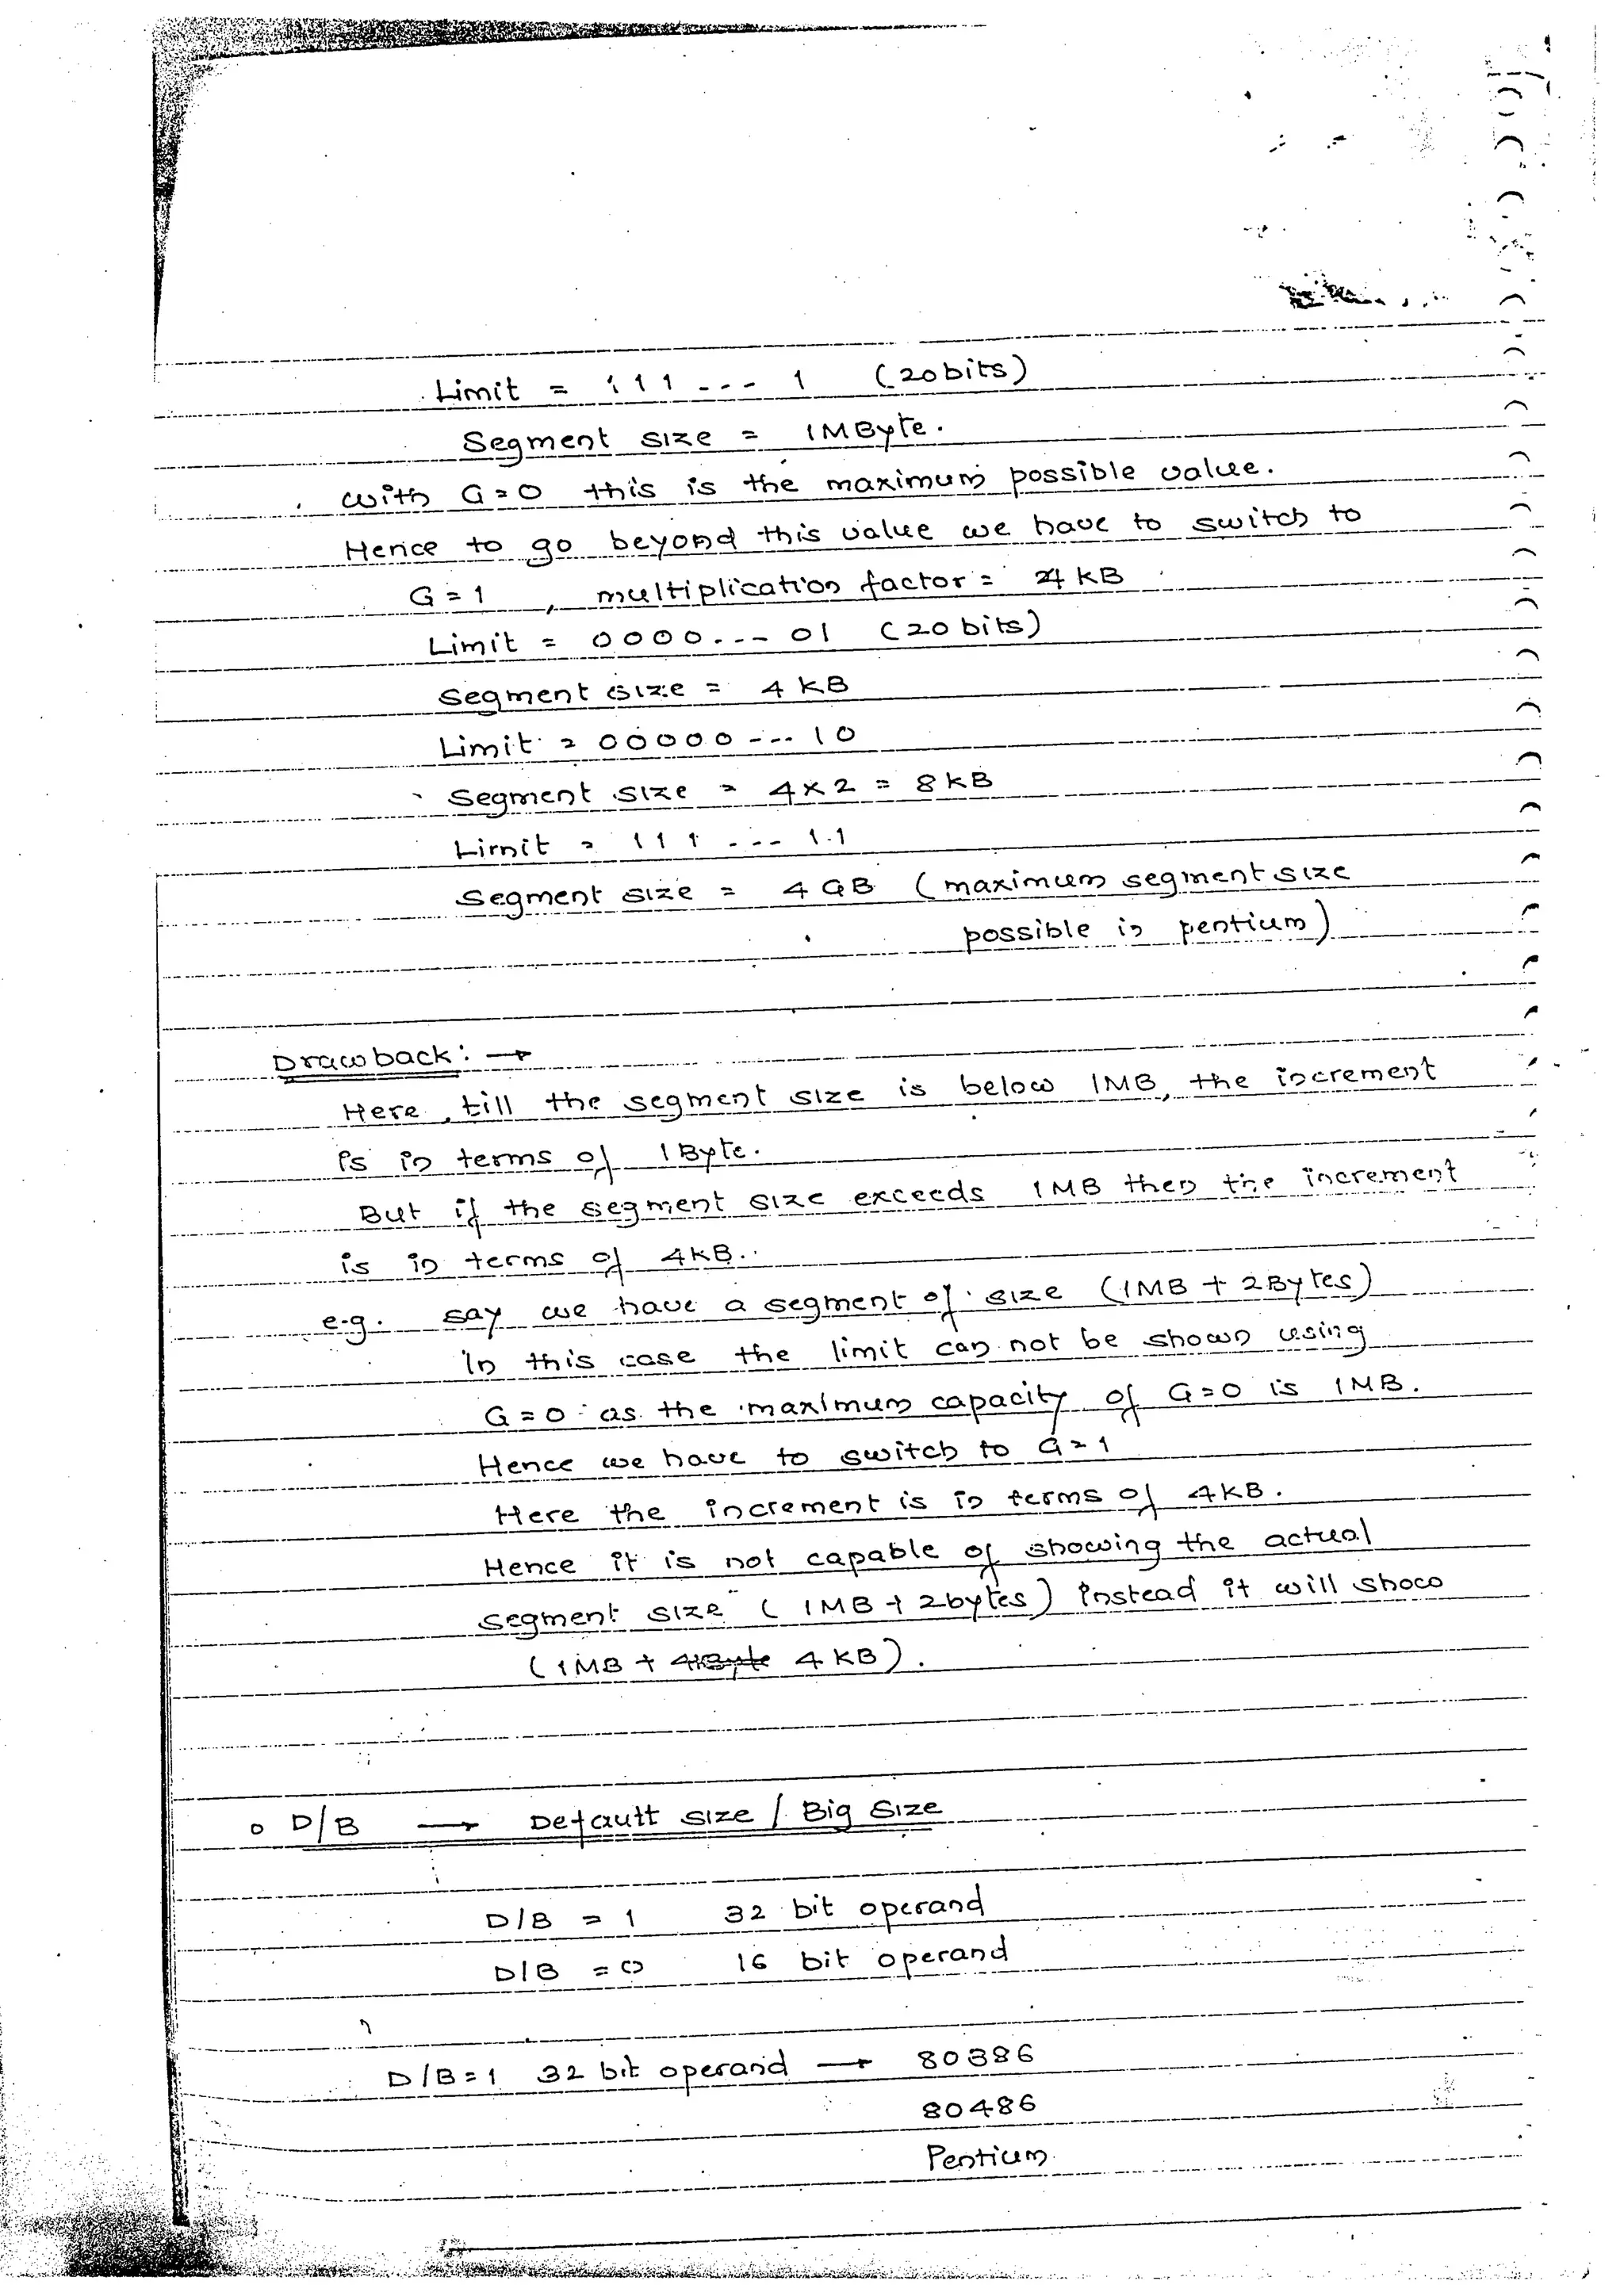 Limit = 111 --- 1 (20bits)
Segment size = 1MByte.
with G=0 this is the maximum possible value.
Hence to go beyond this value we have to switch to
G=1 , multiplication factor = 4 KB
Limit = 0000--- 01 (20 bits)
Segment size = 4 KB
Limit = 00000 --- 10
Segment size = 4x2 = 8 KB
Limit = 111 --- 11
Segment size = 4 GB (maximum segment size
possible in pentium)
Drawback: →
Here, till the segment size is below 1MB, the increment
is in terms of 1Byte.
But if the segment size exceeds 1MB then the increment
is in terms of 4KB.
e.g. say we have a segment of size (1MB + 2Bytes)
In this case the limit can not be shown using
G=0 as the maximum capacity of G=0 is 1MB.
Hence we have to switch to G=1
Here the increment is in terms of 4KB.
Hence it is not capable of showing the actual
segment size (1MB + 2bytes) instead it will show
(1MB + 4Byte 4 KB).
o D/B → Default size / Big Size
D/B = 1 32 bit operand
D/B = 0 16 bit operand
D/B=1 32 bit operand → 80386
80486
Pentium